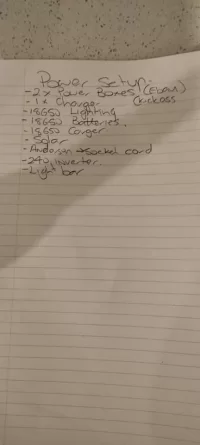 Power Setup:
- 2x Power Boxes
- 1x Charger (Kickass
- 18650 Lighting
- 18650 Batteries.
- 18650 Carger
- Solar
- Anderson → Socket cord
- 240 Inverter
- Light bar